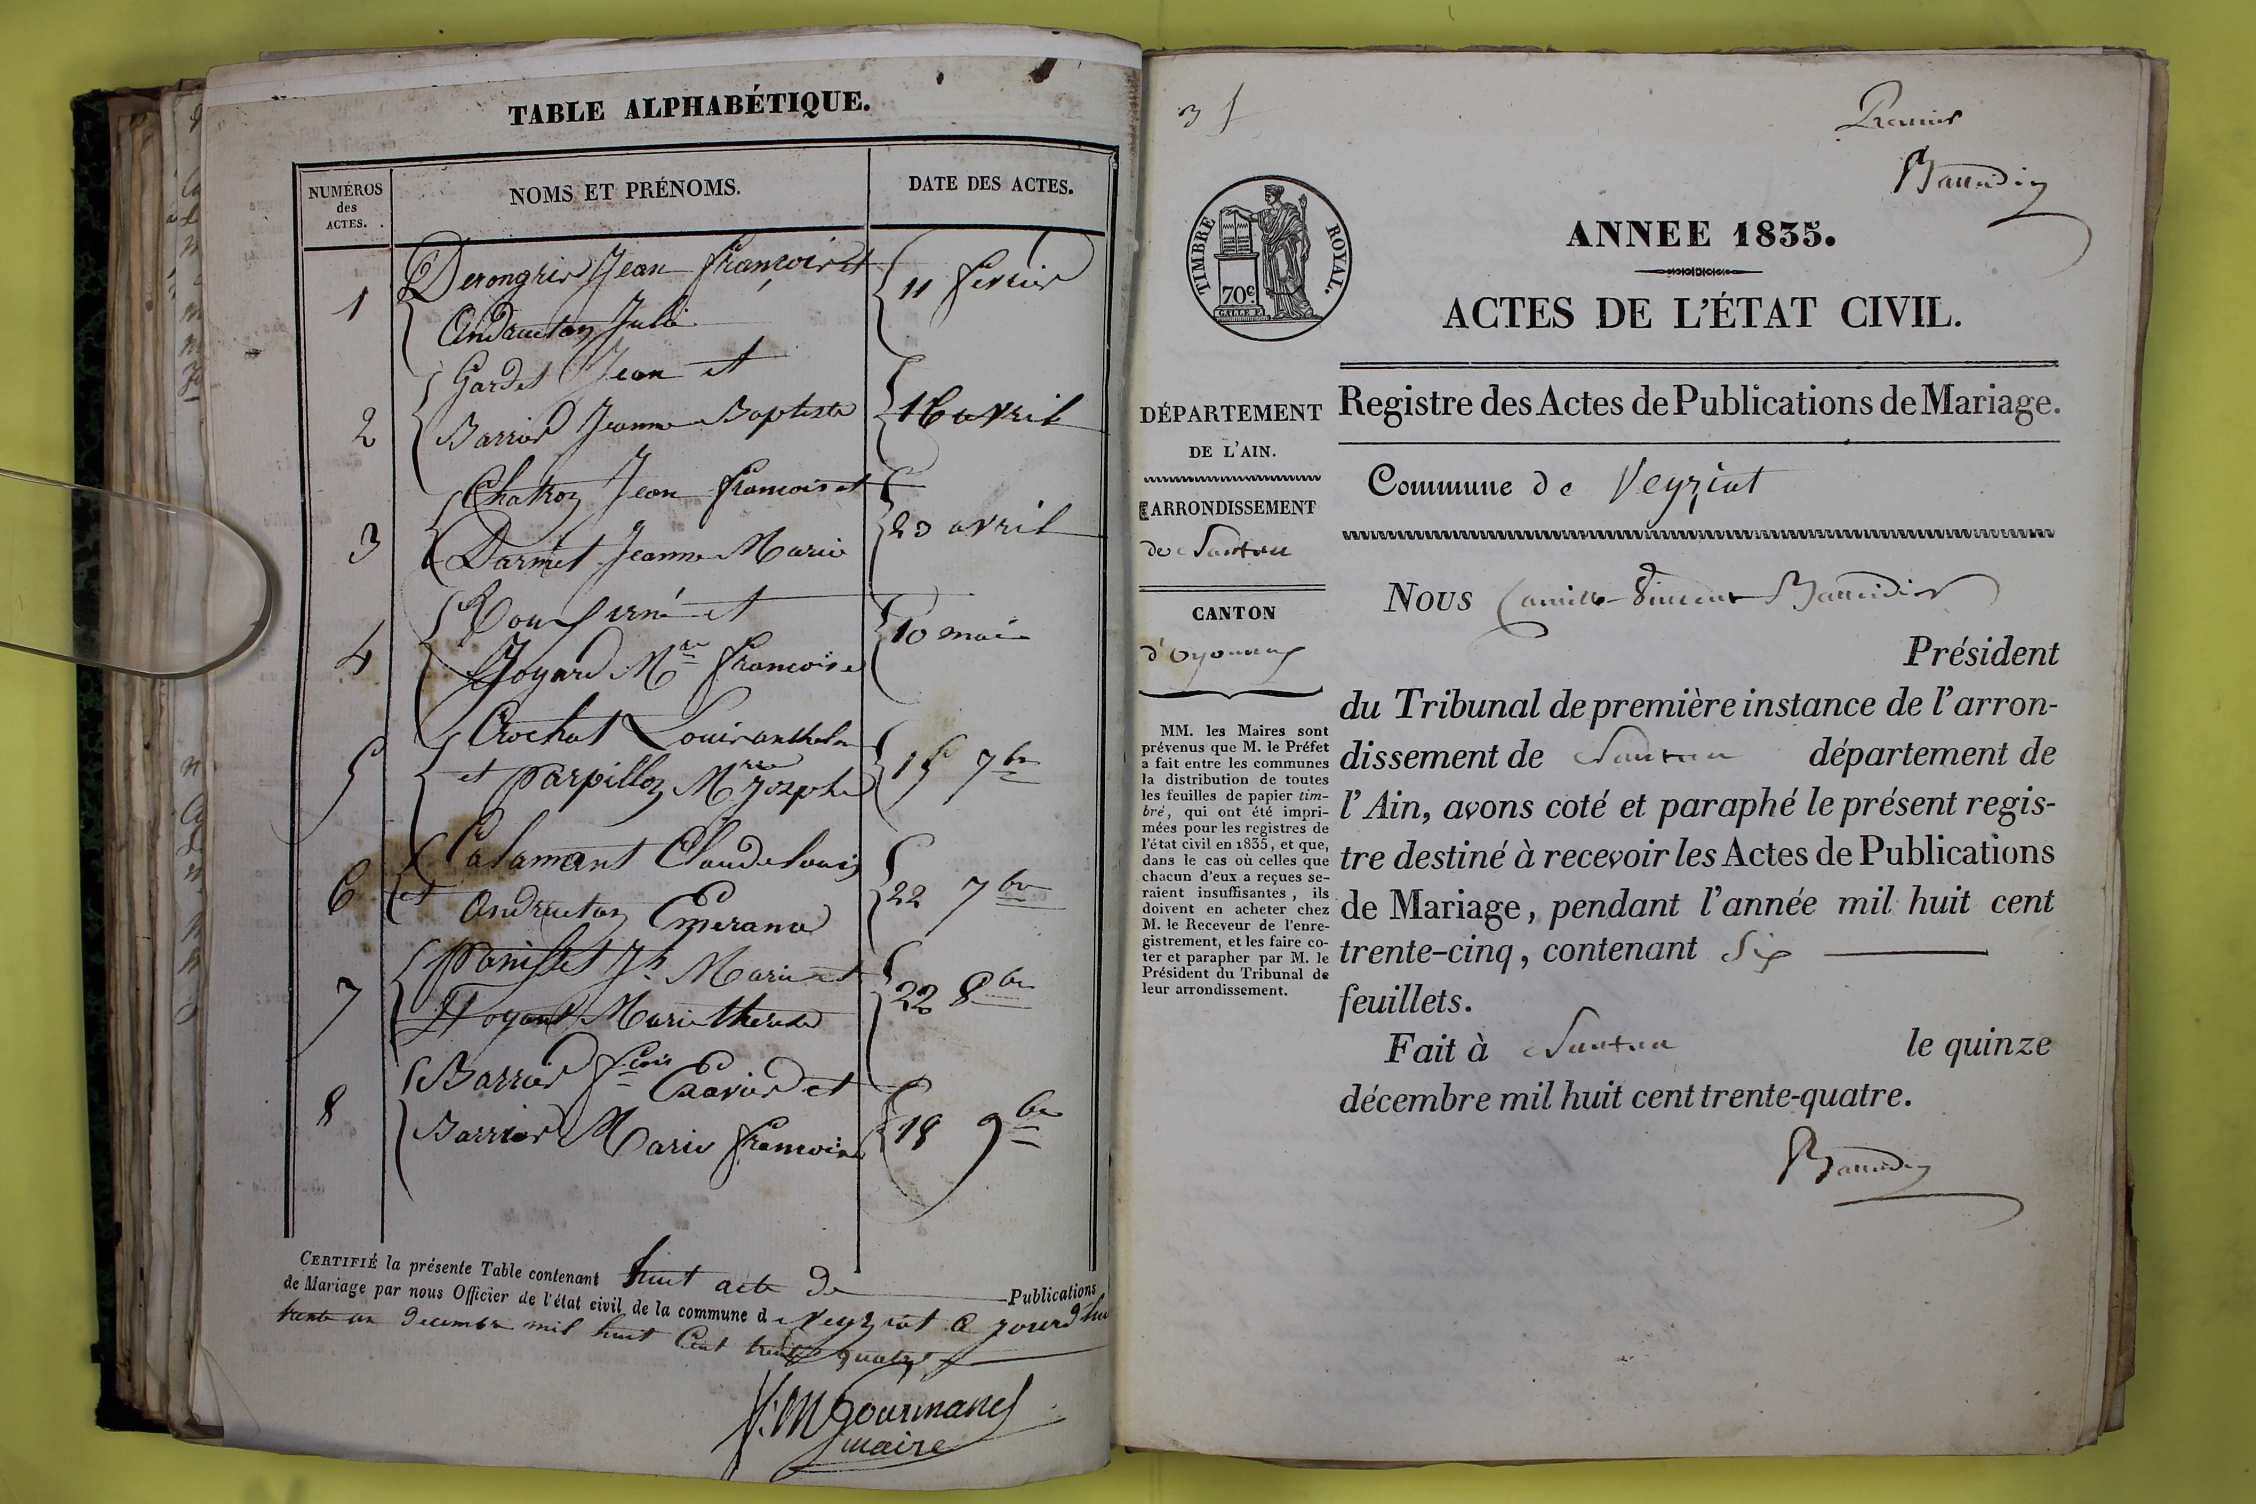 TABLE ALPHABÉTIQUE.
NUMÉROS
des
ACTES.
NOMS ET PRÉNOMS.
DATE DES ACTES.
1
Derongris Jean françois et
Andruetan Julie
11 fevrier
2
Gardet Jean et
Barrier Jeanne Baptiste
16 avril
3
Chatroz Jean francois et
Darmet Jeanne Marie
23 avril
4
et
Goyard Mie francoise
10 mai
5
Crochat Louis anthelme
et Parpilloz Mrie Josephe
15 7bre
6
Calamant Claude Louis
et Andruetan Emerane
22 7bre
7
Panisset Jh Marie et
Marie therese
22 8bre
8
Barrier fcois Xavier et
Barrier Marie francoise
18 9bre
CERTIFIÉ la présente Table contenant huit acte de Publications
de Mariage par nous Officier de l'état civil de la commune d e Veyziat a jourd'hui
trente un decembre mil huit Cent trente quatre
J. M Gourmand
maire
3 f
Premier
Baudin
TIMBRE ROYAL.
70c
ANNEE 1835.
ACTES DE L'ÉTAT CIVIL.
Registre des Actes de Publications de Mariage.
DÉPARTEMENT
DE L'AIN.
ARRONDISSEMENT
de Nantua
CANTON
d'Oyonnax
MM. les Maires sont
prévenus que M. le Préfet
a fait entre les communes
la distribution de toutes
les feuilles de papier tim-
bré, qui ont été impri-
mées pour les registres de
l'état civil en 1835, et que,
dans le cas où celles que
chacun d'eux a reçues se-
raient insuffisantes, ils
doivent en acheter chez
M. le Receveur de l'enre-
gistrement, et les faire co-
ter et parapher par M. le
Président du Tribunal de
leur arrondissement.
Commune de Veyziat
Nous Camille Vincent
Président
du Tribunal de première instance de l'arron-
dissement de Nantua département de
l'Ain, avons coté et paraphé le présent regis-
tre destiné à recevoir les Actes de Publications
de Mariage, pendant l'année mil huit cent
trente-cinq, contenant Six
feuillets.
Fait à Nantua le quinze
décembre mil huit cent trente-quatre.